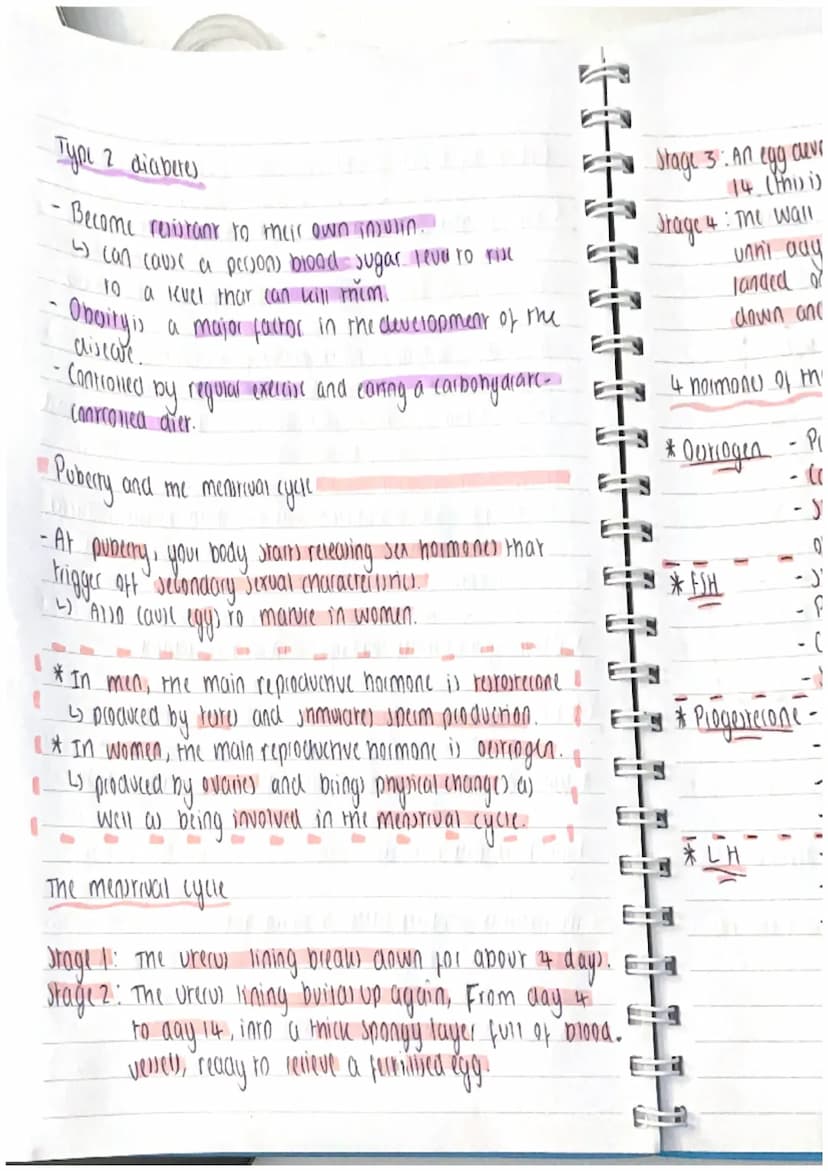 Type 2 diabetes
- Become resistant to their own insulin.
↳ can cause a persons blood sugar level to rise
to a level that can kill them.
- Obesity is a major factor in the development of the
disease.
- Controlled by regular exercise and eating a carbohydrate-
controlled diet.
Puberty and the menstrual cycle
- At puberty, your body starts releasing sex hormones that
trigger off secondary sexual characteristics.
↳ Also cause eggs to mature in women.
* In men, the main reproductive hormone is testosterone
↳ produced by testes and stimulates sperm production.
* In women, the main reproductive hormone is oestrogen.
↳ produced by ovaries and brings physical changes as
well as being involved in the menstrual cycle.
The menstrual cycle
Stage 1: The uterus lining breaks down for about 4 days.
Stage 2: The uterus lining builds up again, From day 4
to day 14, into a thick spongy layer full of blood.
vessels, ready to recieve a fertilised egg.
Stage 3: An egg
14. (this is
Stage 4: The wall
until day
landed
down and
4 hormones of
* Oestrogen -
* FSH -
* Progesterone -
* LH